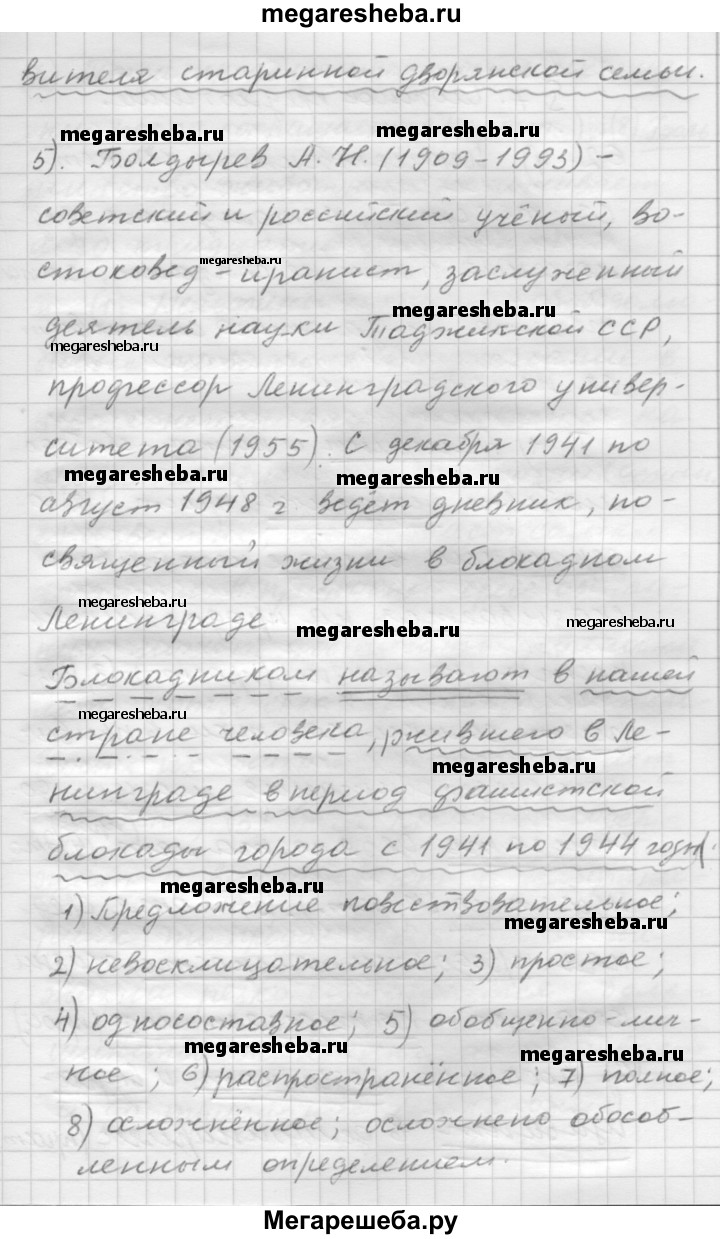 megaresheba.ru
вителя старинной дворянской семьи.
megaresheba.ru megaresheba.ru
5). Болдырев А. Н. (1909-1993) -
советский и российский учёный, во-
megaresheba.ru
стоковед - иранист, заслуженный
megaresheba.ru
деятель науки Таджикской ССР,
megaresheba.ru
профессор Ленинградского универ-
ситета (1955). С декабря 1941 по
megaresheba.ru megaresheba.ru
август 1948 г ведёт дневник, по-
священный жизни в блокадном
megaresheba.ru
Ленинграде
megaresheba.ru megaresheba.ru
Блокадником называют в нашей
megaresheba.ru
стране человека, жившего в Ле-
megaresheba.ru
нинграде в период фашистской
блокады города с 1941 по 1944 годы.
megaresheba.ru
1) Предложение повествовательное;
megaresheba.ru
2) невосклицательное; 3) простое;
4) односоставное; 5) обобщенно-лич-
megaresheba.ru megaresheba.ru
ное; 6) распространённое; 7) полное;
8) осложнённое; осложнено обособ-
ленным определением.
Мегарешеба.ру